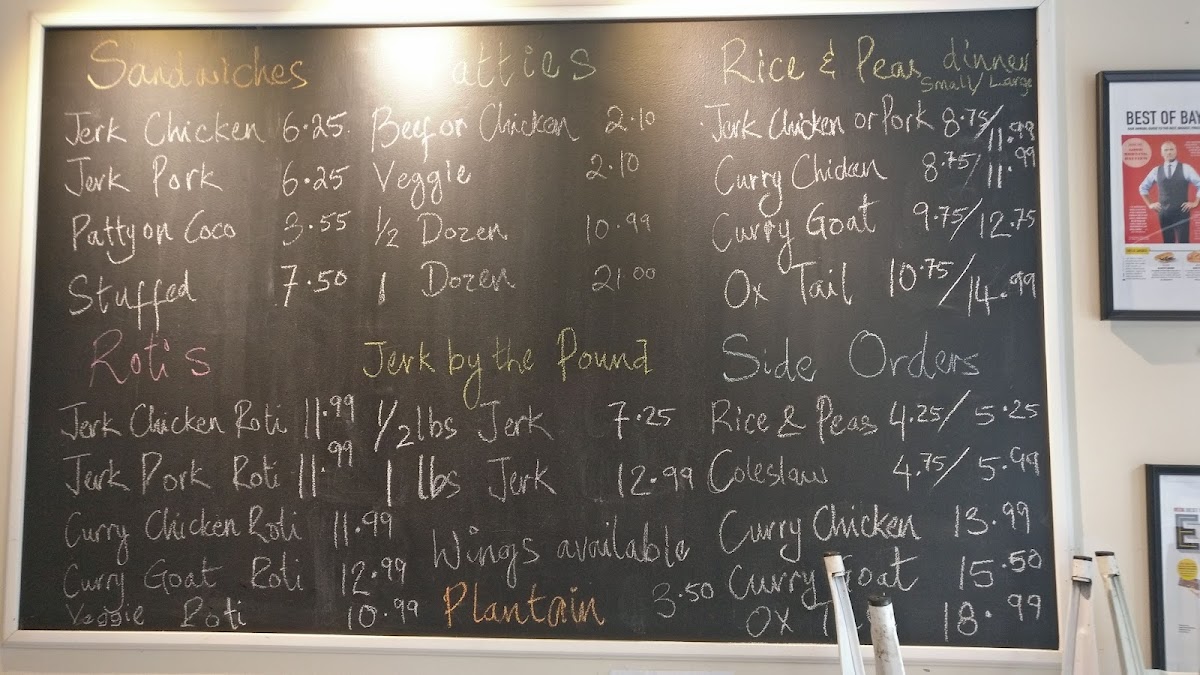 Sandwiches
Jerk Chicken 6.25
Jerk Pork 6.25
Patty on Coco 3.55
Stuffed 7.50
atties
Beef or Chicken 2.10
Veggie 2.10
1/2 Dozen 10.99
1 Dozen 21.00
Rice & Peas dinner
Small/Large
Jerk Chicken or Pork 8.75/11.99
Curry Chicken 8.75/11.99
Curry Goat 9.75/12.75
Ox Tail 10.75/14.99
Roti's
Jerk Chicken Roti 11.99
Jerk Pork Roti 11.99
Curry Chicken Roti 11.99
Curry Goat Roti 12.99
Veggie Roti 10.99
Jerk by the Pound
1/2 lbs Jerk 7.25
1 lbs Jerk 12.99
Wings available
Plantain 3.50
Side Orders
Rice & Peas 4.25/5.25
Coleslaw 4.75/5.99
Curry Chicken 13.99
Curry Goat 15.50
Ox T 18.99
BEST OF BAY